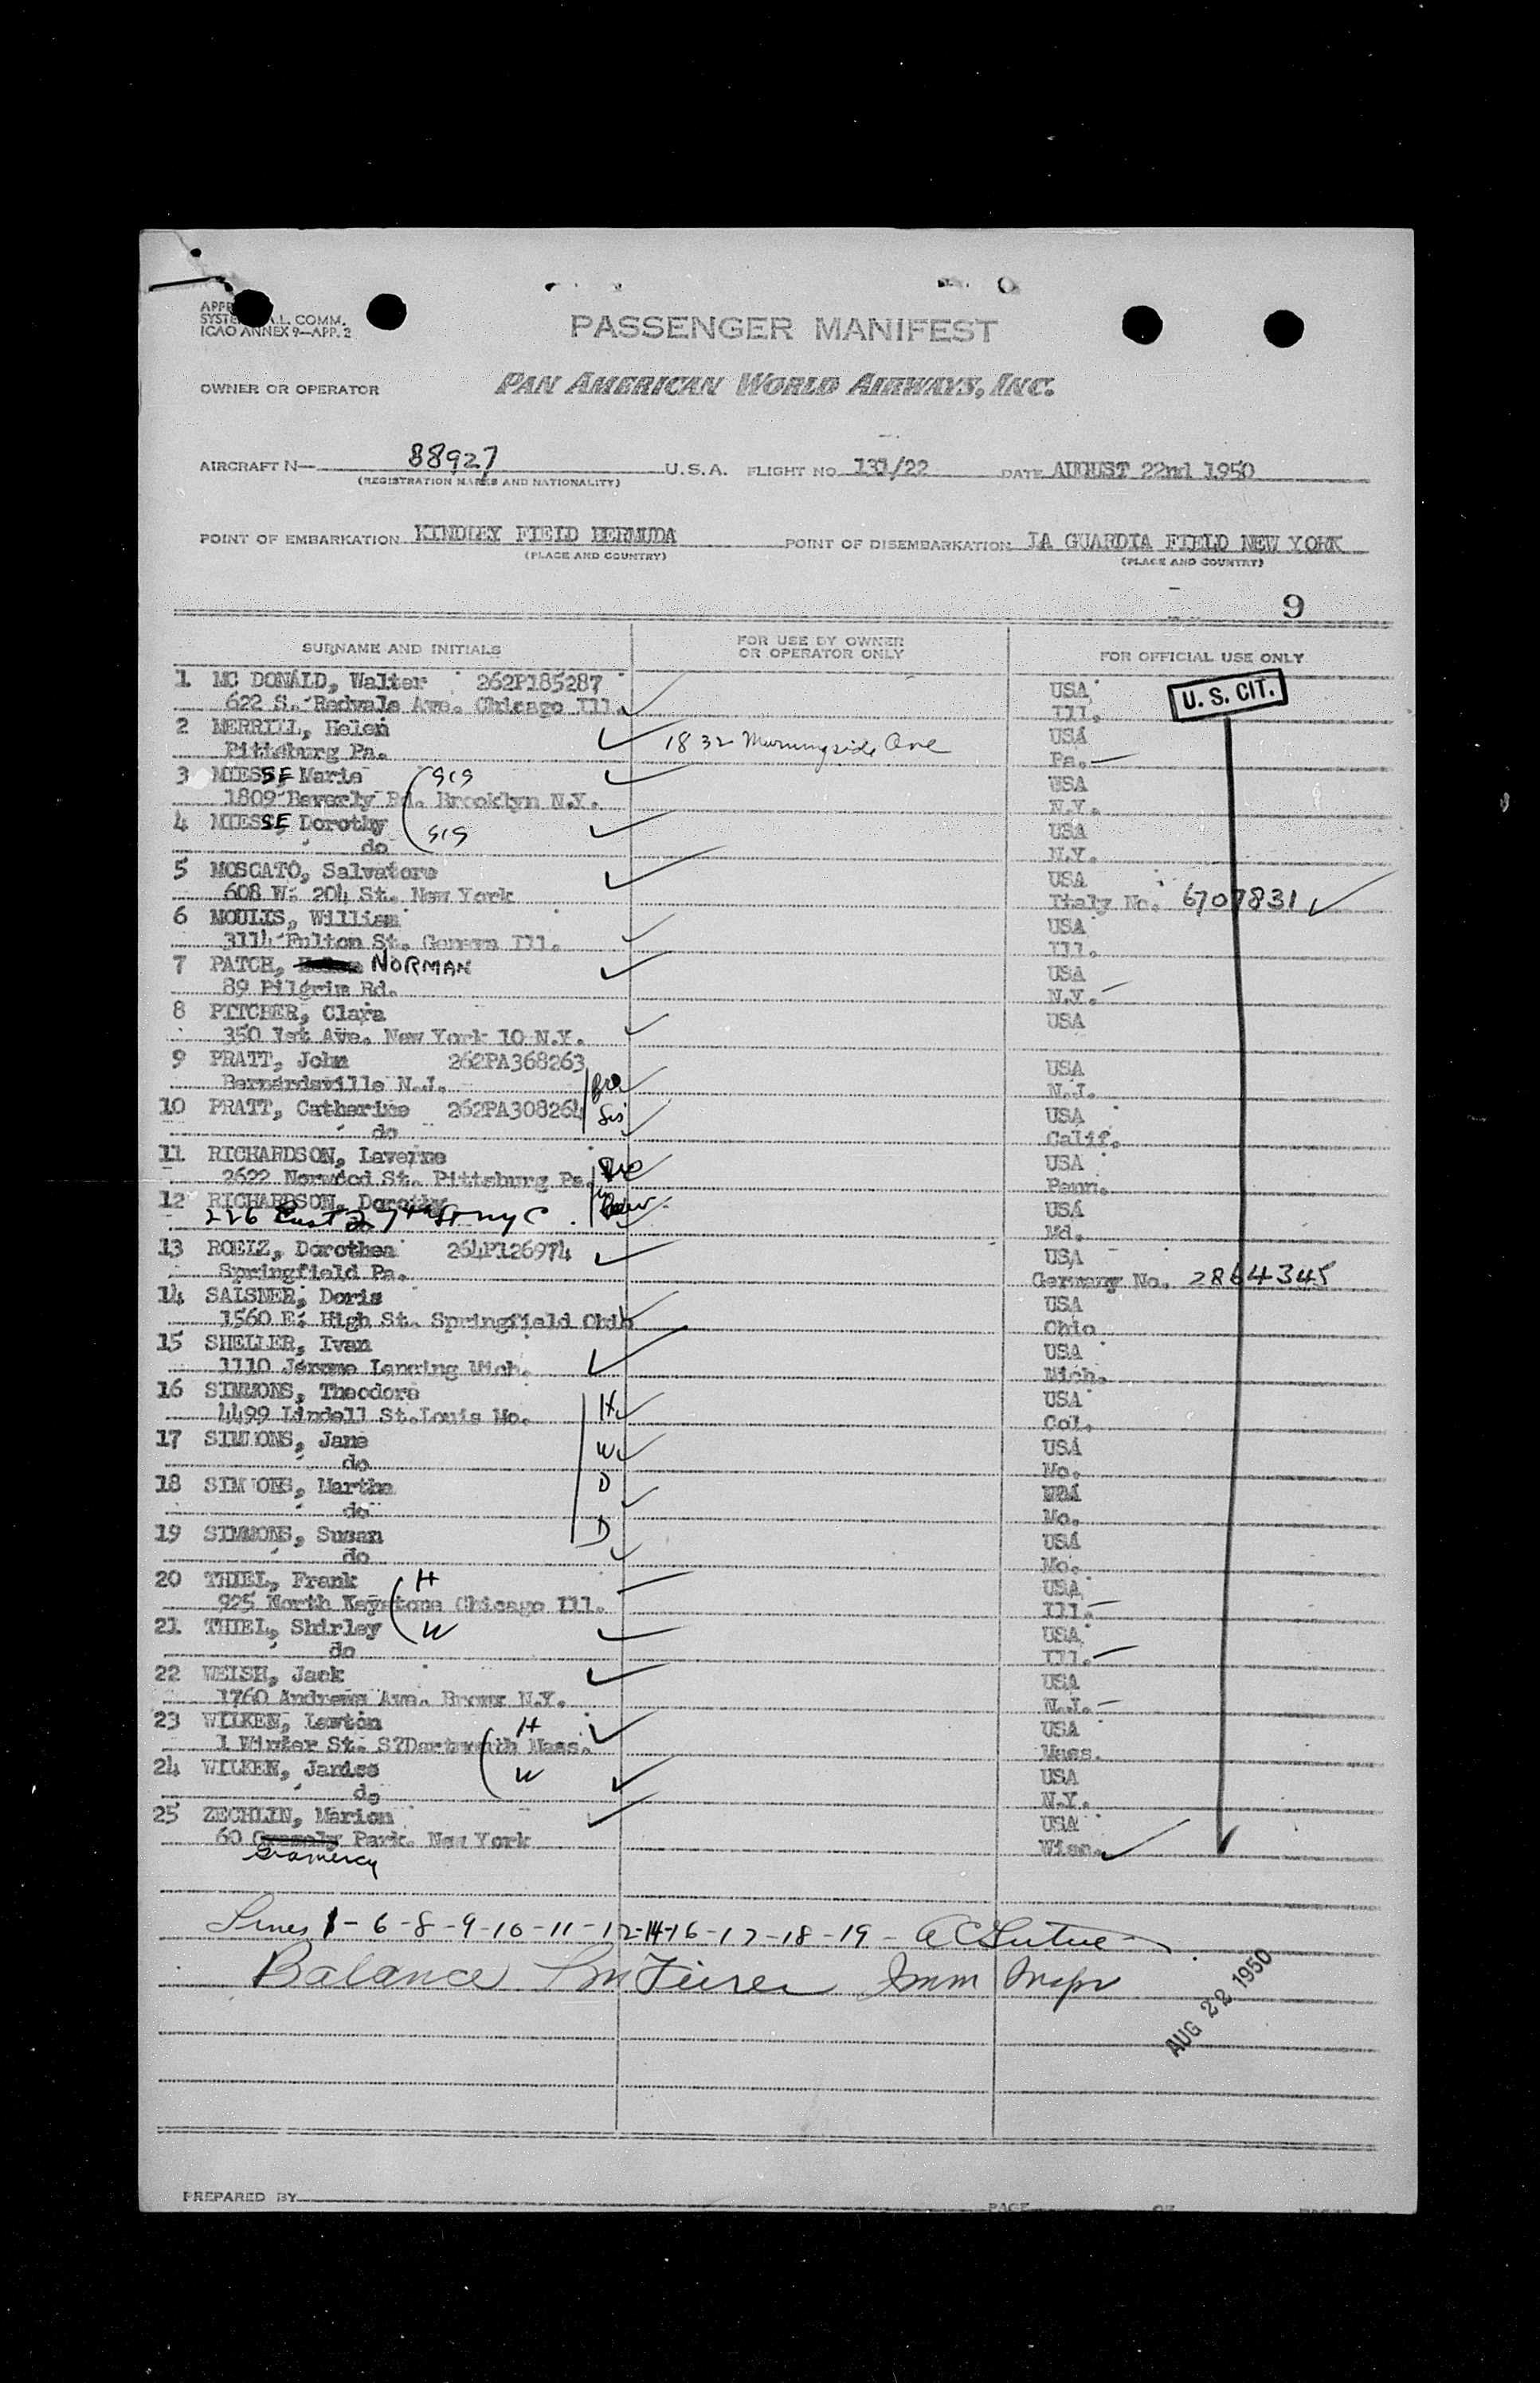 SYSTE A.L. COMM.
ICAO ANNEX 9—APP. 2
PASSENGER MANIFEST
OWNER OR OPERATOR PAN AMERICAN WORLD AIRWAYS, INC.
AIRCRAFT N— 88927 U.S.A. FLIGHT NO. 131/22 DATE AUGUST 22nd 1950
(REGISTRATION MARKS AND NATIONALITY)
POINT OF EMBARKATION KINDLEY FIELD BERMUDA POINT OF DISEMBARKATION LA GUARDIA FIELD NEW YORK
(PLACE AND COUNTRY) (PLACE AND COUNTRY)
9
SURNAME AND INITIALS FOR USE BY OWNER OR OPERATOR ONLY FOR OFFICIAL USE ONLY
1 MC DONALD, Walter 262P185287 USA U. S. CIT.
622 S. Redvale Ave. Chicago Ill. Ill.
2 MERRILL, Helen 1832 Murrayside Ave USA
Pittsburg Pa. Pa.
3 MIESSE Marie SIS USA
1809 Beverly Rd. Brooklyn N.Y. N.Y.
4 MIESSE Dorothy SIS USA
do N.Y.
5 MOSCATO, Salvatore USA
608 W. 204 St. New York Italy No. 6707831
6 MOULIS, William USA
3114 Fulton St. Geneva Ill. Ill.
7 PATCH, NORMAN USA
89 Pilgrim Rd. N.Y.
8 PITCHER, Clara USA
350 1st Ave. New York 10 N.Y.
9 PRATT, John 262PA368263 Bro USA
Bernardsville N.J. N.J.
10 PRATT, Catherine 262PA308264 Sis USA
do Calif.
11 RICHARDSON, Laverne USA
2622 Norwood St. Pittsburg Pa. Penn.
12 RICHARDSON, Dorothy USA
226 East 27th St NYC Md.
13 ROELZ, Dorothea 264P126974 USA
Springfield Pa. Germany No. 2864345
14 SAISNER, Doris USA
1560 E. High St. Springfield Ohio Ohio
15 SHELLER, Ivan USA
1110 Jerome Lancing Mich. Mich.
16 SIMMONS, Theodore H USA
4499 Lindell St.Louis Mo. Col.
17 SIMMONS, Jane W USA
do Mo.
18 SIMMONS, Martha D USA
do Mo.
19 SIMMONS, Susan D USA
do Mo.
20 THIEL, Frank H USA
925 North Keystone Chicago Ill. Ill.
21 THIEL, Shirley W USA
do Ill.
22 WEISH, Jack USA
1760 Andrews Ave. Bronx N.Y. N.J.
23 WILKEN, Lawton H USA
1 Winter St. S?Dartmouth Mass. Mass.
24 WILKEN, Janice W USA
do N.Y.
25 ZECHLIN, Marion USA
60 Park. New York Wisc.
Gramercy
Lines 1-6-8-9-10-11-12-14-16-17-18-19-
Balance Imm Inspr
AUG 22 1950
PREPARED BY PAGE OF